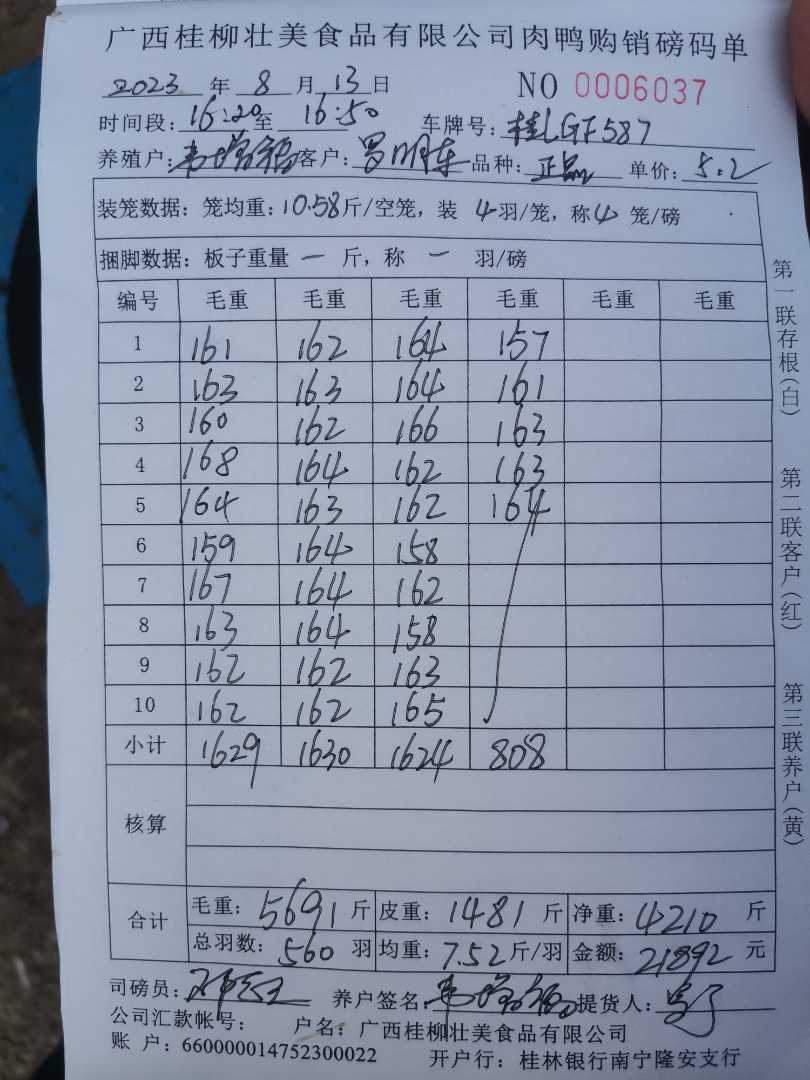 广西桂柳壮美食品有限公司肉鸭购销磅码单
2023 年 8 月 13 日 NO 0006037
时间段: 16:20 至 16:50 车牌号: 桂LGF587
养殖户: 韦 客户: 罗明东 品种: 正品 单价: 5.2
装笼数据: 笼均重: 10.58 斤/空笼, 装 4 羽/笼, 称 4 笼/磅
捆脚数据: 板子重量 一 斤, 称 一 羽/磅
编号 毛重 毛重 毛重 毛重 毛重 毛重
1 161 162 164 157
2 163 163 164 161
3 160 162 166 163
4 168 164 162 163
5 164 163 162 164
6 159 164 158
7 167 164 162
8 163 164 158
9 162 162 163
10 162 162 165
小计 1629 1630 1624 808
核算
合计 毛重: 5691 斤 皮重: 1481 斤 净重: 4210 斤
总羽数: 560 羽 均重: 7.52 斤/羽 金额: 21892 元
司磅员: 养户签名: 韦 提货人:
公司汇款帐号: 户名: 广西桂柳壮美食品有限公司
账 户: 660000014752300022 开户行: 桂林银行南宁隆安支行
第一联存根(白) 第二联客户(红) 第三联养户(黄)